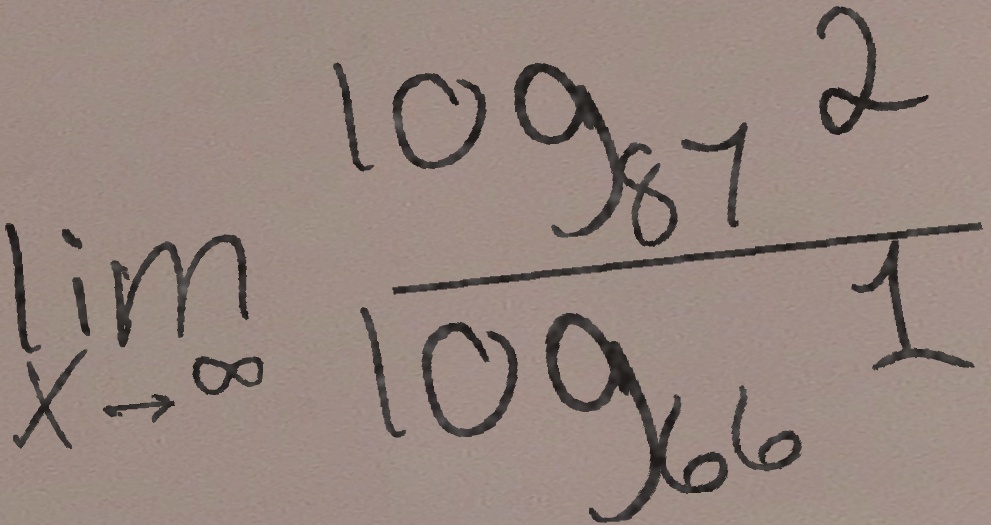 \lim_{x \to \infty} \frac{\log_{87} 2}{\log_{66} 1}